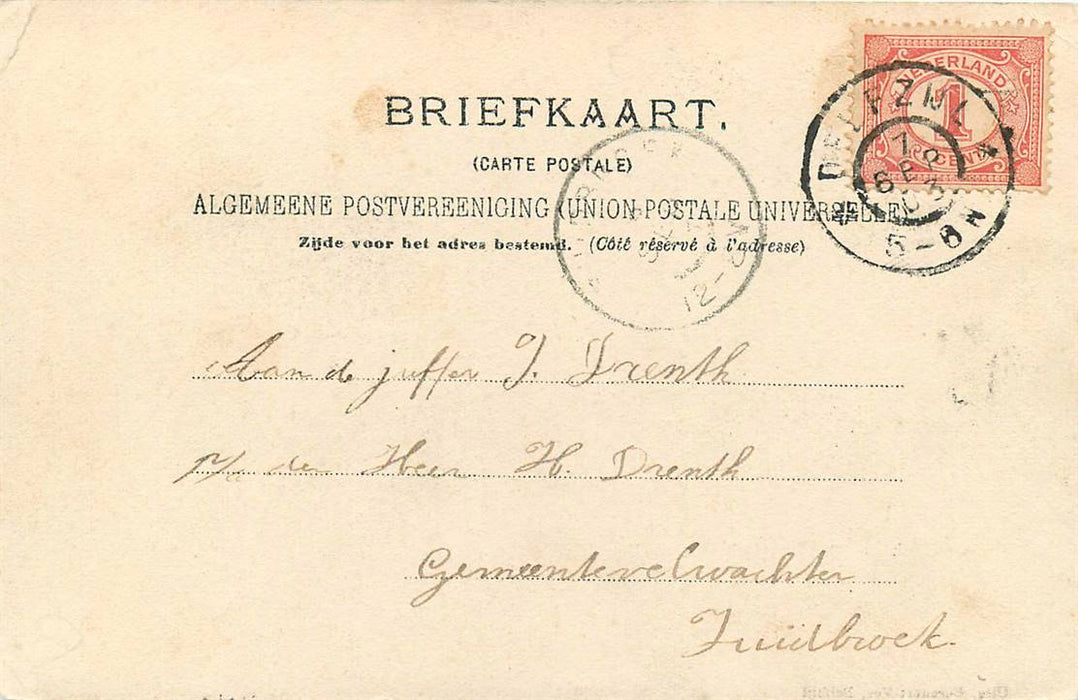 NEDERLAND
1
CENT
DELFZIJL
7 SEP 03
5-6 N
BRIEFKAART.
(CARTE POSTALE)
ALGEMEENE POSTVEREENIGING (UNION POSTALE UNIVERSELLE)
Zijde voor het adres bestemd. (Côté réservé à l'adresse)
12-
Aan de juffer J. Drenth
p/a den Heer H. Drenth
Gemeentevelwachter
Zuidbroek.